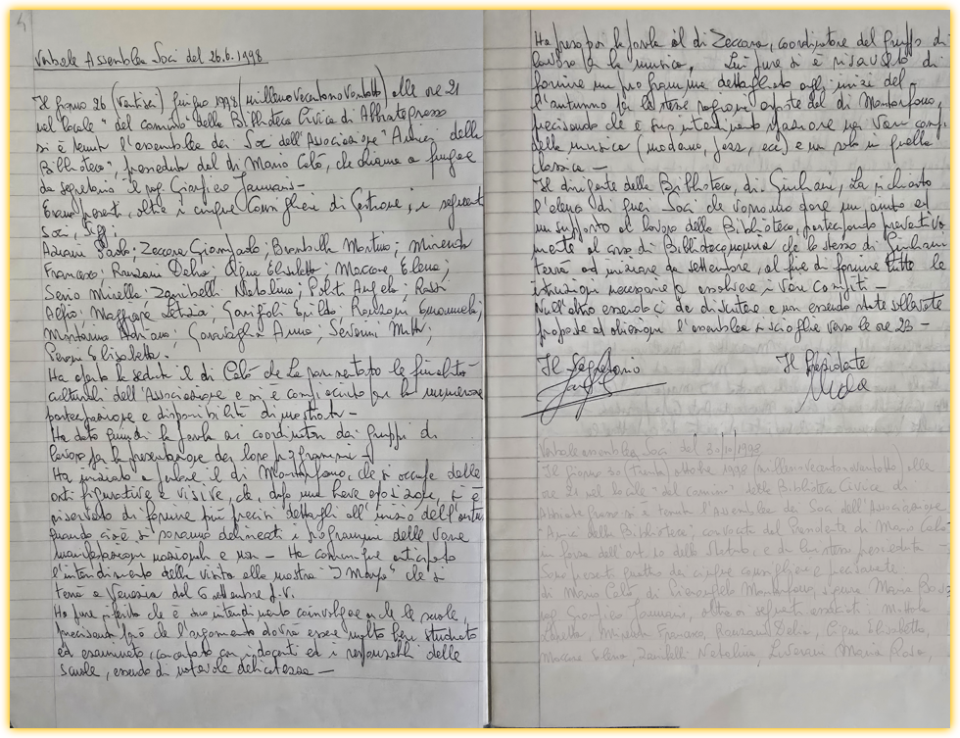 4
Verbale Assemblea Soci del 26.6.1998
Il giorno 26 (ventisei) giugno 1998 (millenovecentonovantotto) alle ore 21
nel locale "del camino" della Biblioteca Civica di Abbiategrasso
si è tenuta l'assemblea dei Soci dell'Associazione "Amici della
Biblioteca", presieduta dal dr. Mario Calò, che chiama a fungere
da segretario il rag. Gianfico Iannaris.
Erano presenti, oltre i cinque Consiglieri di Gestione, i seguenti
Soci, Sigg:
Adriani Paolo; Zeccara Giancarlo; Brambilla Martino; Minervini
Francesco; Ranzani Delio; Cigne Elisabetta; Maccore Elena;
Serio Mirella; Zanibelli Natalina; Poletti Angelo; Rossi
Alfio; Letizia; Emanuela;
Adriano; Garavaglia Anna; Severini
Elisabetta.
Ha aperto la seduta il dr. Calò che ha presentato le finalità
culturali dell'Associazione e si è compiaciuto per la numerosa
partecipazione e disponibilità dimostrata -
Ha dato quindi la parola ai coordinatori dei gruppi di
lavoro per la presentazione dei loro programmi -
Ha iniziato a parlare il dr. Montorfano, che si occupa delle
arti figurative e visive, che, dopo una breve esposizione, si è
riservato di fornire più precisi dettagli all'inizio dell'autunno
quando cioè si saranno delineati i programmi delle varie
manifestazioni nazionali e non - Ha comunque anticipato
l'intendimento della visita alla mostra "I Maya" che si
terrà a Venezia dal 6 settembre p.v.
Ha pure riferito che è suo intendimento coinvolgere anche le scuole,
precisando però che l'argomento dovrà essere molto ben studiato
ed esaminato concertato con i docenti ed i responsabili delle
scuole, essendo di notevole delicatezza -
Ha preso poi la parola il dr. Zeccara, coordinatore del gruppo di
lavoro per la musica. Lui pure si è riservato di
fornire un programma dettagliato agli inizi del-
l'autunno per le stesse ragioni esposte dal dr. Montorfano,
precisando che è suo intendimento spaziare nei vari campi
della musica (moderna, jazz, ecc) e non solo in quella
classica -
Il dirigente della Biblioteca, dr. Giuliani, ha richiesto
l'elenco di quei Soci che vorranno dare un aiuto ed
un supporto al lavoro della Biblioteca, partecipando preventiva-
mente al corso di Biblioteconomia che lo stesso dr. Giuliani
terrà ad iniziare da settembre, al fine di fornire tutte le
istruzioni necessarie a assolvere i vari compiti -
Null'altro essendoci da discutere e non essendo state sollevate
proposte od obiezioni l'assemblea si scioglie verso le ore 23 -
Il Segretario Il Presidente
Verbale assemblea Soci del 30/10/1998
Il giorno 30 (trenta) ottobre 1998 (millenovecentonovantotto) alle
ore 21 nel locale "del camino" della Biblioteca Civica di
Abbiategrasso si è tenuta l'Assemblea dei Soci dell'Associazione
Amici della Biblioteca, convocata dal Presidente dr. Mario Calò
in forza dell'art. 10 dello Statuto, e da lui stesso presieduta
Sono presenti quattro dei cinque consiglieri e precisamente
dr. Mario Calò, dr. Montorfano, Maria
rag. Iannaris, oltre ai seguenti
Loretta, Francesco, Ranzani Delio, Cigne Elisabetta,
Maccore Elena, Zanibelli Natalina, Maria Rosa,